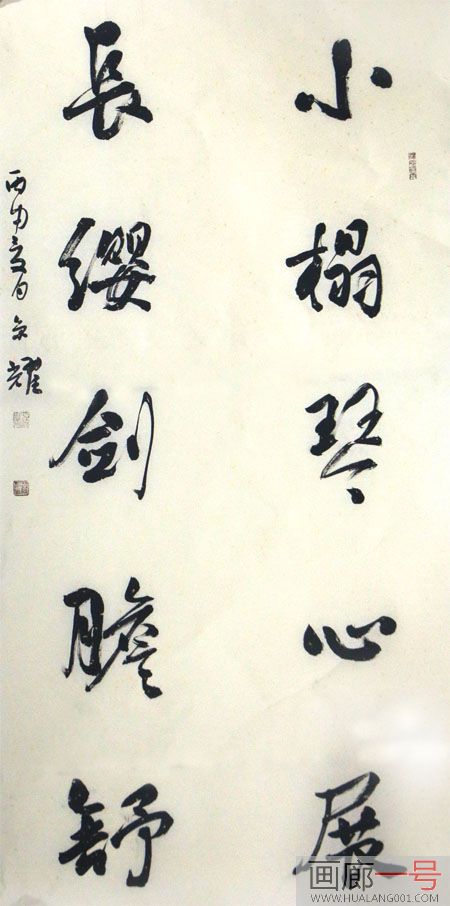 小榻琴心展
長纓劍膽舒
丙申夏月
耀
画廊一号
WWW.HUALANG001.COM